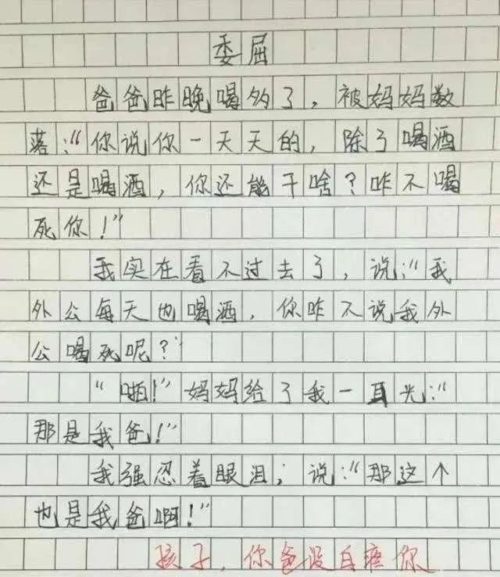 委屈
爸爸昨晚喝多了，被妈妈数
落：“你说你一天天的，除了喝酒
还是喝酒，你还能干啥？咋不喝
死你！”
我实在看不过去了，说：“我
外公每天也喝酒，你咋不说我外
公喝死呢？”
“啪！”妈妈给了我一耳光：“
那是我爸！”
我强忍着眼泪；说：“那这个
也是我爸啊！”
孩子，你爸没白疼你